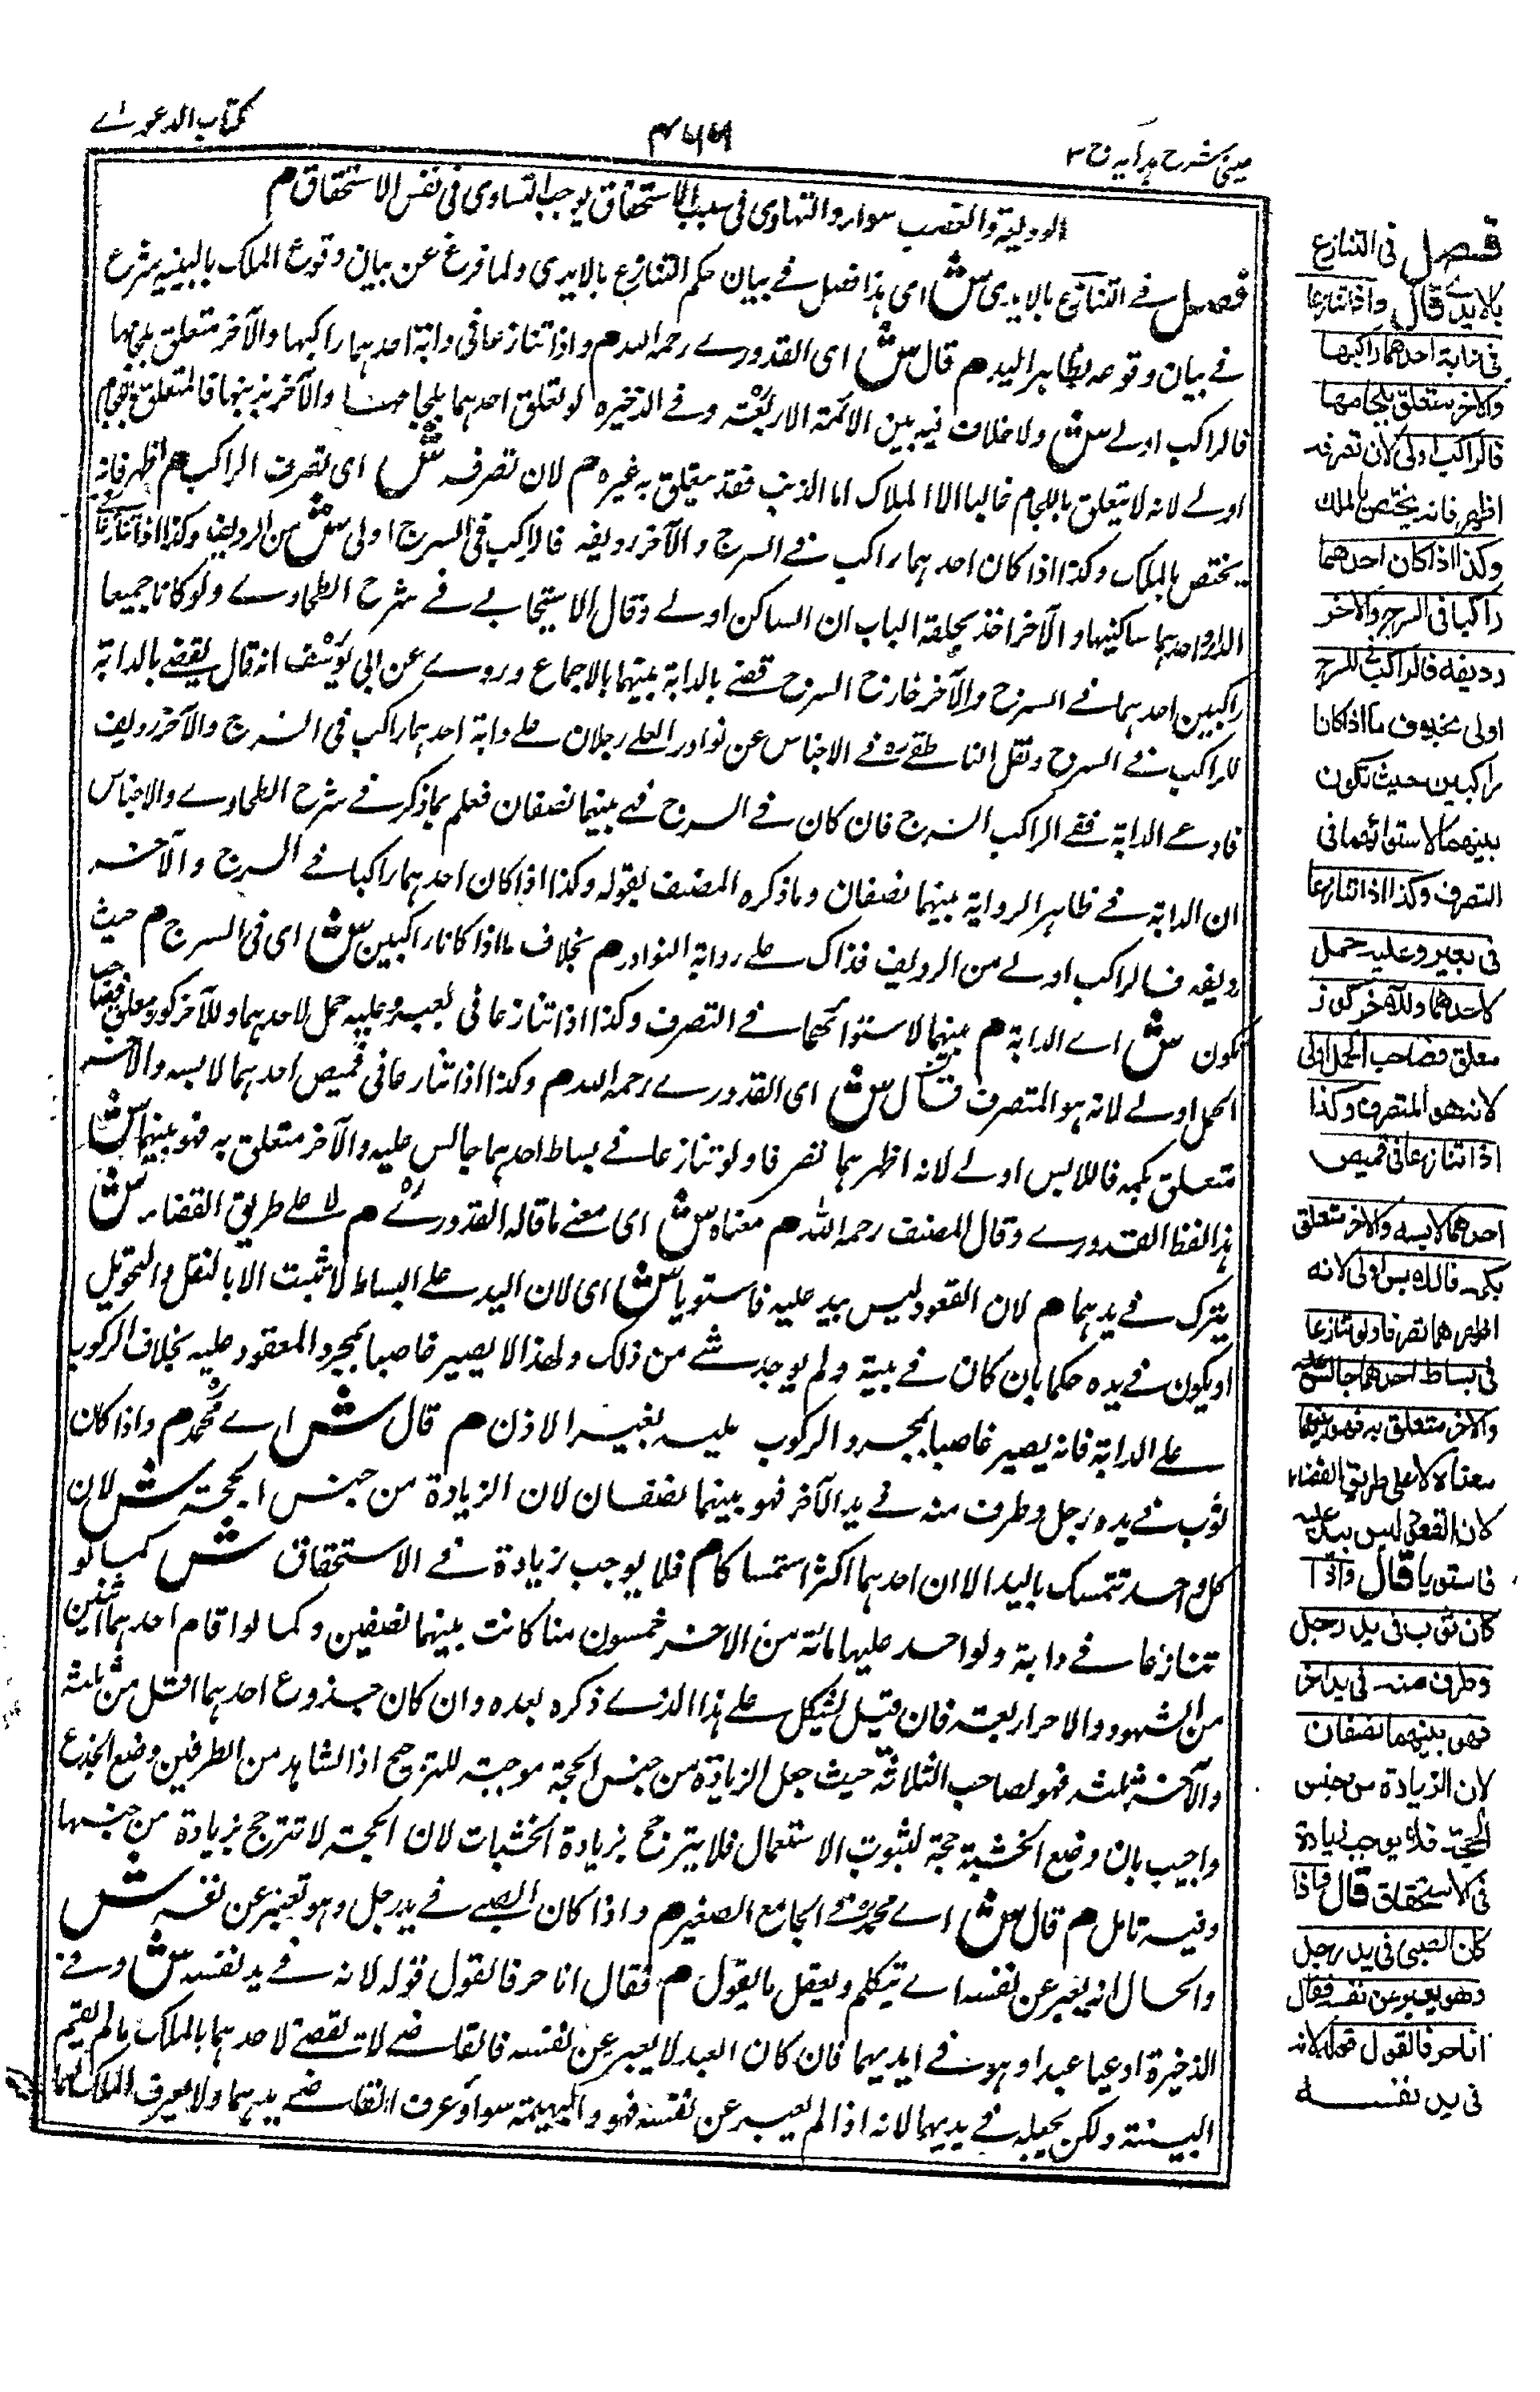 عینی شرح ہدایہ ج ۳
کتاب الدعوے
الوديعة والغصب سواء والتساوى فى سبب الاستحقاق يوجب التساوى فى نفس الاستحقاق م
فصل فے التنازع بالايدى ش اى هذا فصل فے بيان حكم التنازع بالايدى ولما فرغ عن بيان وقوع الملك بالبينة شرع
فے بيان وقوعه بظاهر اليد م قال ش اى القدورے رحمه الله م واذا تنازعا فى دابة احدهما راكبها والآخر متعلق بلجامها
فالراكب اولے ش ولا خلاف فيه بين الائمة الاربعة وفے الذخيرة لو تعلق احدهما بلجامها والآخر بذنبها فالمتعلق بلجام
اولے لانه لا يتعلق باللجام غالبا الا الملاك اما الذنب فقد يتعلق به غيره م لان تصرفه ش اى تصرف الراكب م اظهر فانه
يختص بالملك وكذا اذا كان احدهما راكب فے السرج والآخر رديفه فالراكب فى السرج اولى ش من الرديف وكذا اذا تنازعا فے
الدار واحدهما ساكنها والآخر اخذ بحلقة الباب ان الساكن اولے وقال الاسبيجابے فے شرح الطحاوے ولو كانا جميعا
راكبين احدهما فے السرج والآخر خارج السرج قضے بالدابة بينهما بالاجماع وروے عن ابى يوسف انه قال يقضے بالدابة
للراكب فے السرج ونقل الناطقے رح فے الاجناس عن نوادر المعلے رجلان علے دابة احدهما راكب فى السرج والآخر رديف
فادعے الدابة فهے الراكب السرج فان كان فے السرج فهے بينهما نصفان فعلم بما ذكر فے شرح الطحاوے والاجناس
ان الدابة فے ظاهر الرواية بينهما نصفان وما ذكره المصنف بقوله وكذا اذا كان احدهما راكبا فے السرج والآخر
رديفه فالراكب اولے من الرديف فذاك علے رواية النوادر م بخلاف ما اذا كانا راكبين ش اى فى السرج م حيث
تكون ش اے الدابة م بينهما لاستوائهما فے التصرف وكذا اذا تنازعا فى بعير وعليه حمل لاحدهما وللآخر كوز معلق فصاحب
الحمل اولے لانه هو المتصرف قال ش اى القدورے رحمه الله م وكذا اذا تنازعا فى قميص احدهما لابسه والآخر
متعلق بكمه فاللابس اولے لانه اظهرهما تصرفا ولو تنازعا فے بساط احدهما جالس عليه والآخر متعلق به فهو بينهما ش
هذا لفظ القدورے وقال المصنف رحمه الله م معناه ش اى معنے ما قاله القدورے رح م لا علے طريق القضاء ش
يترك فے يدهما م لان القعود ليس بيد عليه فاستويا ش اى لان اليد علے البساط لا تثبت الا بالنقل والتحويل
او يكون فے يده حكما بان كان فے بيته ولم يوجد شے من ذلك ولهذا لا يصير غاصبا بمجرد القعود عليه بخلاف الركوب
علے الدابة فانه يصير غاصبا بمجرد الركوب عليه بغير الاذن م قال ش اے محمد رح م واذا كان
ثوب فے يده رجل وطرف منه فے يد الآخر فهو بينهما نصفان لان الزيادة من جنس الحجة ش لان
كل واحد تتمسك باليد الا ان احدهما اكثر استمساكا م فلا يوجب زيادة فے الاستحقاق ش كما لو
تنازعا فے دابة ولواحد عليها مائة من الاخر خمسون منا كانت بينهما نصفين وكما لو اقام احدهما اثنين
من الشهود والاخر اربعة فان قيل يشكل علے هذا الذے ذكره بعده وان كان جذوع احدهما اقل من ثلثة
والآخر ثلثة فهو لصاحب الثلاثة حيث جعل الزيادة من جنس الحجة موجبة للترجيح اذ الشاهد من الطرفين وضع الجذع
واجيب بان وضع الخشبة حجة لثبوت الاستعمال فلا يترجح بزيادة الخشبات لان الحجة لا تترجح بزيادة من جنسها
وفيه تامل م قال ش اے محمد رح فے الجامع الصغير م واذا كان الصبے فے يد رجل وهو تعبر عن نفسه ش
والحال انه يعبر عن نفسه اے يتكلم ويعقل ما يقول م فقال انا حر فالقول قوله لانه فے يد نفسه ش وفے
الذخيرة ادعيا عبدا وهو فے ايديهما فان كان العبد لا يعبر عن نفسه فالقاضے لا يقضے لاحدهما بالملك ما لم يقيم
البينة ولكن يجعله فے يديهما لانه اذا لم يعبر عن نفسه فهو والبهيمة سواء وعرف القاضے يدهما ولا يعرف الملك لهما
فصل فى التنازع
بالايدے قال واذا تنازعا
فى دابة احدهما راكبها
والآخر متعلق بلجامها
فالراكب اولى لان تصرفه
اظهر فانه يختص بالملك
وكذا اذا كان احدهما
راكبا فى السرج والآخر
رديفه فالراكب فى السرج
اولى بخلاف ما اذا كانا
راكبين حيث تكون
بينهما لاستوائهما فى
التصرف وكذا اذا تنازعا
فى بعير وعليه حمل
لاحدهما وللآخر كوز
معلق فصاحب الحمل اولى
لانه هو المتصرف وكذا
اذا تنازعا فى قميص
احدهما لابسه والآخر متعلق
بكمه فاللابس اولى لانه
اظهرهما تصرفا ولو تنازعا
فى بساط احدهما جالس عليه
والآخر متعلق به فهو بينهما
معناه لا على طريق القضاء
لان القعود ليس بيد عليه
فاستويا قال واذا
كان ثوب فى يد رجل
وطرف منه فى يد آخر
فهو بينهما نصفان
لان الزيادة من جنس
الحجة فلا يوجب زيادة
فى الاستحقاق قال واذا
كان الصبى فى يد رجل
وهو يعبر عن نفسه فقال
انا حر فالقول قوله لانه
فى يد نفسه